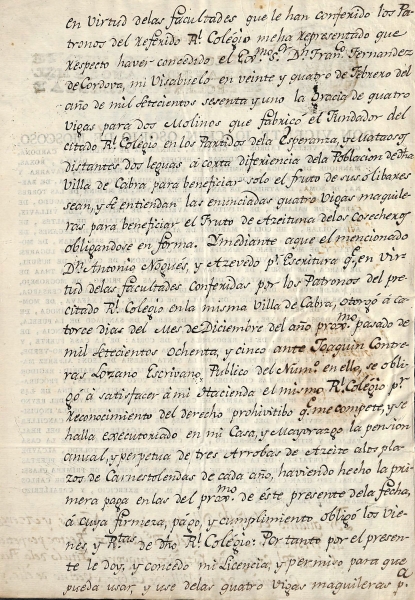 en virtud delas facultades que le han conferido los Pa-
tronos del referido Rl. Colegio meha representado que
respecto haver concedido el Exmo. Sr. Dn. Franco. Fernandez
de Cordova, mi Visabuelo en veinte y quatro de Febrero del
año de mil setecientos sesenta y uno la Gracia de quatro
Vigas para dos Molinos que fabricó el Fundador del
citado Rl. Colegio en los Partidos dela Esperanza, y Mataosos
distantes dos leguas á corta diferiencia dela Poblacion de dha
Villa de Cabra para beneficiar solo el fruto de sus olibares
sean, y se entiendan las enunciadas quatro Vigas maquile-
ras para beneficiar el Fruto de Azeituna delos Cosecheros
obligandose en forma. Y mediante aque el mencionado
Dn. Antonio Nogués, y Azevedo pr. Escritura qe. en vir-
tud delas facultades conferidas por los Patronos del pre-
citado Rl. Colegio en la misma Villa de Cabra, otorgó á ca-
torce dias del Mes de Diciembre del año proxmo. pasado de
mil setecientos ochenta, y cinco ante Joaquin Contre-
ras Lozano Escrivano Publico del Numo. en ella, se obli-
gó á satisfacer á mi Hacienda el mismo Rl. Colegio pr.
reconocimiento del derecho prohivitibo qe. me compete, y se
halla executoriado en mi Casa, y Mayorazgo la pension
anual, y perpetua de tres Arrobas de Azeite alos pla-
zos de Carnestolendas de cada año, haviendo hecho la pri-
mera paga en las del proxmo. de este presente dela fecha,
á cuya firmeza, pago, y cumplimiento obligó los Vie-
nes, y Rtas. de dho. Rl. Colegio: Por tanto por el presen-
te le doy, y concedo mi Licencia, y permiso para que
pueda usar, y use de las quatro Vigas maquileras pa.